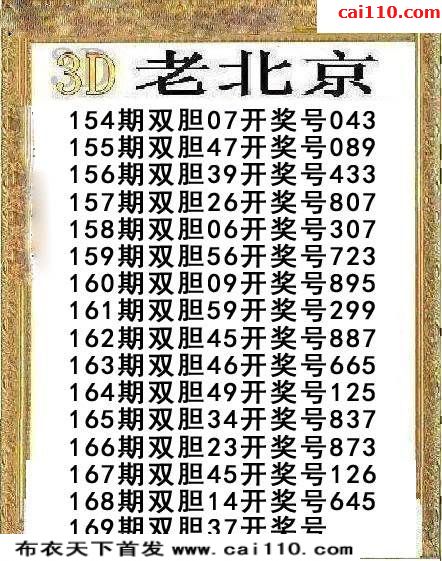 cai110.com
3D 老北京
154期双胆07开奖号043
155期双胆47开奖号089
156期双胆39开奖号433
157期双胆26开奖号807
158期双胆06开奖号307
159期双胆56开奖号723
160期双胆09开奖号895
161期双胆59开奖号299
162期双胆45开奖号887
163期双胆46开奖号665
164期双胆49开奖号125
165期双胆34开奖号837
166期双胆23开奖号873
167期双胆45开奖号126
168期双胆14开奖号645
169期双胆37开奖号
布衣天下首发 www.cai110.com